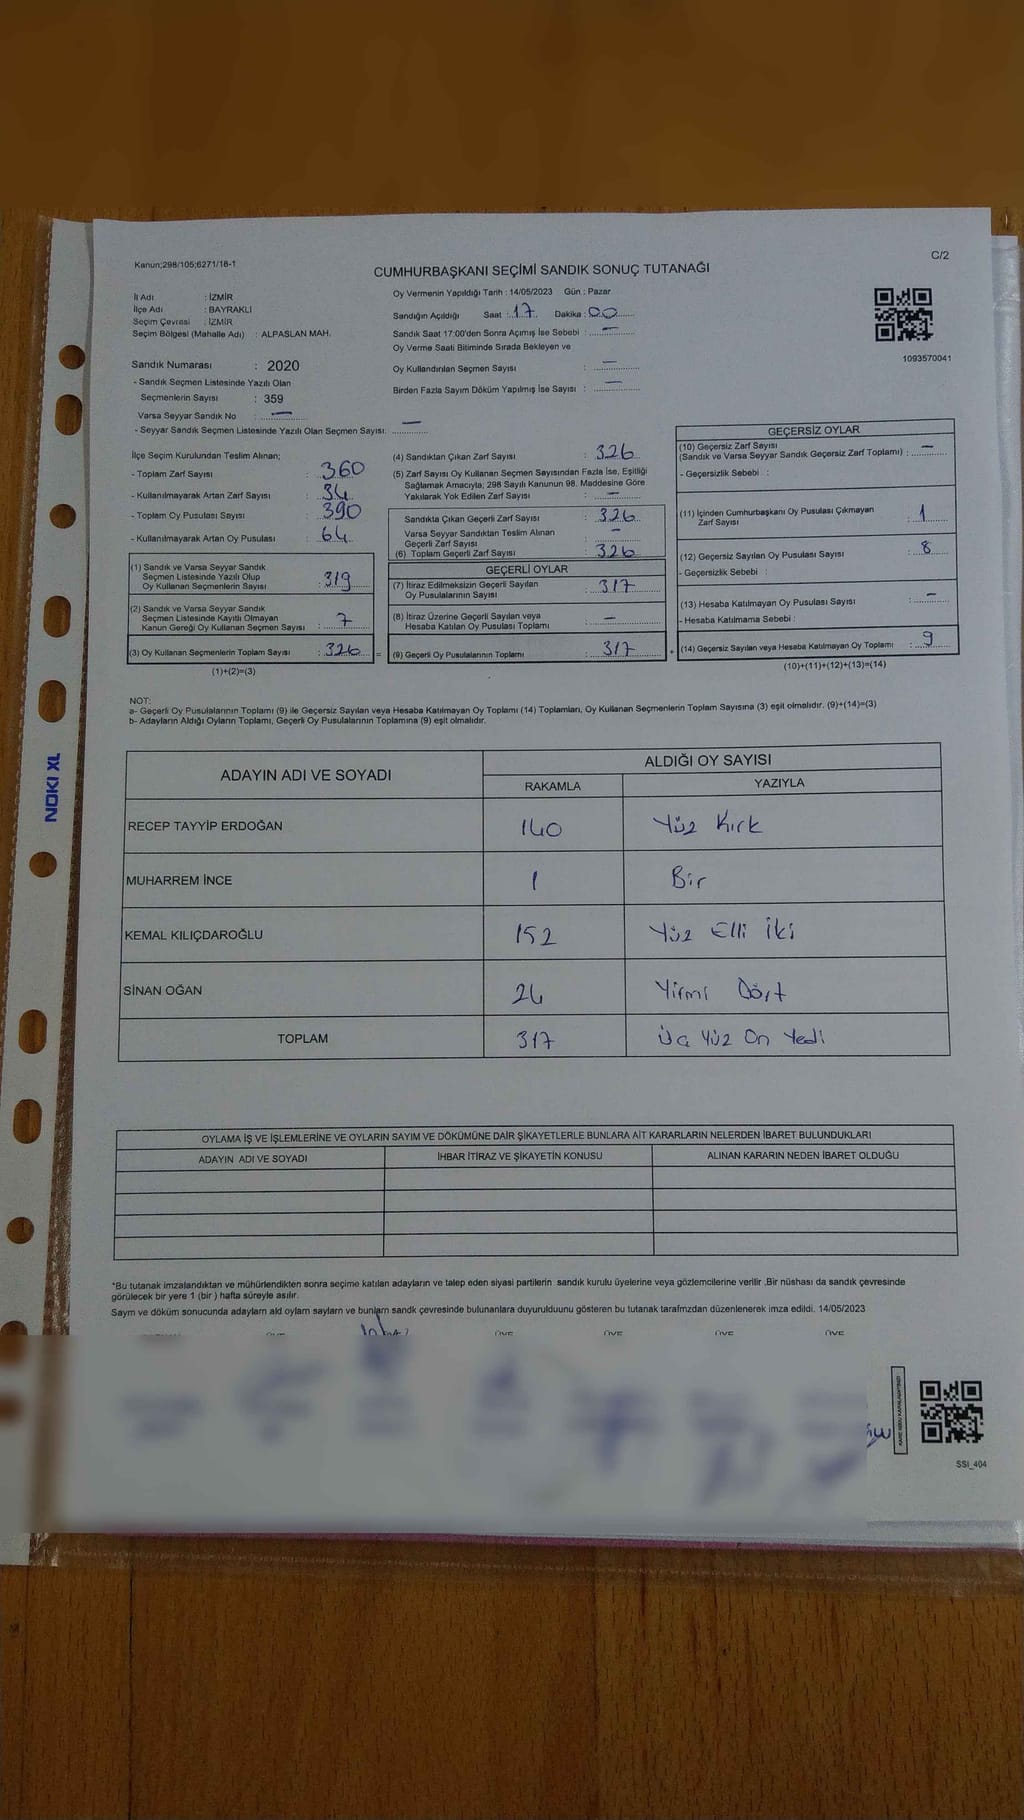 Kanun;298/105;6271/18-1
C/2
CUMHURBAŞKANI SEÇİMİ SANDIK SONUÇ TUTANAĞI
İl Adı : İZMİR
İlçe Adı : BAYRAKLI
Seçim Çevresi : İZMİR
Seçim Bölgesi (Mahalle Adı) : ALPASLAN MAH.
Oy Vermenin Yapıldığı Tarih : 14/05/2023 Gün : Pazar
Sandığın Açıldığı Saat : 17 Dakika : 00
Sandık Saat 17:00'den Sonra Açımış İse Sebebi : —
Oy Verme Saati Bitiminde Sırada Bekleyen ve
Oy Kullandırılan Seçmen Sayısı : —
Birden Fazla Sayım Döküm Yapılmış İse Sayısı : —
1093570041
Sandık Numarası : 2020
- Sandık Seçmen Listesinde Yazılı Olan
Seçmenlerin Sayısı : 359
Varsa Seyyar Sandık No : —
- Seyyar Sandık Seçmen Listesinde Yazılı Olan Seçmen Sayısı: —
İlçe Seçim Kurulundan Teslim Alınan;
- Toplam Zarf Sayısı : 360
- Kullanılmayarak Artan Zarf Sayısı : 34
- Toplam Oy Pusulası Sayısı : 390
- Kullanılmayarak Artan Oy Pusulası : 64
(1) Sandık ve Varsa Seyyar Sandık
Seçmen Listesinde Yazılı Olup
Oy Kullanan Seçmenlerin Sayısı : 319
(2) Sandık ve Varsa Seyyar Sandık
Seçmen Listesinde Kayıtlı Olmayan
Kanun Gereği Oy Kullanan Seçmen Sayısı : 7
(3) Oy Kullanan Seçmenlerin Toplam Sayısı : 326 =
(1)+(2)=(3)
(4) Sandıktan Çıkan Zarf Sayısı : 326
(5) Zarf Sayısı Oy Kullanan Seçmen Sayısından Fazla İse, Eşitliği
Sağlamak Amacıyla; 298 Sayılı Kanunun 98. Maddesine Göre
Yakılarak Yok Edilen Zarf Sayısı : —
Sandıkta Çıkan Geçerli Zarf Sayısı : 326
Varsa Seyyar Sandıktan Teslim Alınan
Geçerli Zarf Sayısı : —
(6) Toplam Geçerli Zarf Sayısı : 326
GEÇERLİ OYLAR
(7) İtiraz Edilmeksizin Geçerli Sayılan
Oy Pusulalarının Sayısı : 317
(8) İtiraz Üzerine Geçerli Sayılan veya
Hesaba Katılan Oy Pusulası Toplamı : —
(9) Geçerli Oy Pusulalarının Toplamı : 317 +
GEÇERSİZ OYLAR
(10) Geçersiz Zarf Sayısı
(Sandık ve Varsa Seyyar Sandık Geçersiz Zarf Toplamı) : —
- Geçersizlik Sebebi :
(11) İçinden Cumhurbaşkanı Oy Pusulası Çıkmayan
Zarf Sayısı : 1
(12) Geçersiz Sayılan Oy Pusulası Sayısı : 8
- Geçersizlik Sebebi :
(13) Hesaba Katılmayan Oy Pusulası Sayısı : —
- Hesaba Katılmama Sebebi :
(14) Geçersiz Sayılan veya Hesaba Katılmayan Oy Toplamı : 9
(10)+(11)+(12)+(13)=(14)
NOT:
a- Geçerli Oy Pusulalarının Toplamı (9) ile Geçersiz Sayılan veya Hesaba Katılmayan Oy Toplamı (14) Toplamları, Oy Kullanan Seçmenlerin Toplam Sayısına (3) eşit olmalıdır. (9)+(14)=(3)
b- Adayların Aldığı Oyların Toplamı, Geçerli Oy Pusulalarının Toplamına (9) eşit olmalıdır.
ADAYIN ADI VE SOYADI ALDIĞI OY SAYISI
RAKAMLA YAZIYLA
RECEP TAYYİP ERDOĞAN 140 Yüz Kırk
MUHARREM İNCE 1 Bir
KEMAL KILIÇDAROĞLU 152 Yüz Elli İki
SİNAN OĞAN 24 Yirmi Dört
TOPLAM 317 Üç Yüz On Yedi
OYLAMA İŞ VE İŞLEMLERİNE VE OYLARIN SAYIM VE DÖKÜMÜNE DAİR ŞİKAYETLERLE BUNLARA AİT KARARLARIN NELERDEN İBARET BULUNDUKLARI
ADAYIN ADI VE SOYADI İHBAR İTİRAZ VE ŞİKAYETİN KONUSU ALINAN KARARIN NEDEN İBARET OLDUĞU
*Bu tutanak imzalandıktan ve mühürlendikten sonra seçime katılan adayların ve talep eden siyasi partilerin sandık kurulu üyelerine veya gözlemcilerine verilir .Bir nüshası da sandık çevresinde
görülecek bir yere 1 (bir ) hafta süreyle asılır.
Sayım ve döküm sonucunda adayların ald oyların sayların ve bunların sandk çevresinde bulunanlara duyurulduunu gösteren bu tutanak tarafmzdan düzenlenerek imza edildi. 14/05/2023
ÜYE ÜYE ÜYE ÜYE
SSI_404
NOKI XL